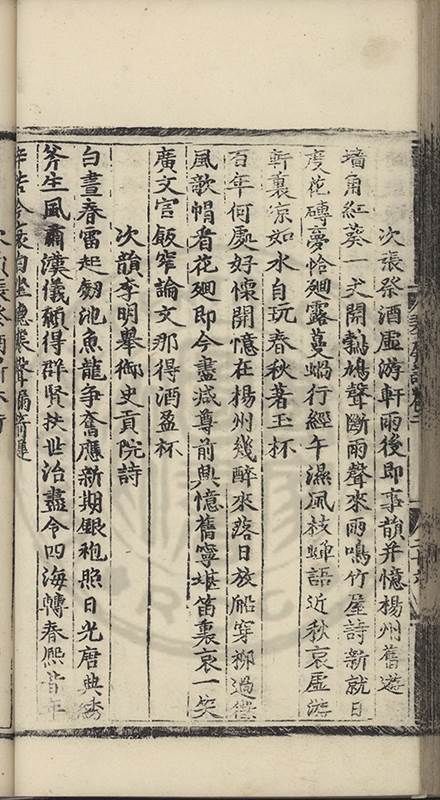 次張祭酒虛游軒雨後即事韻并憶楊州舊遊
墻角紅葵一丈開鵓鳩聲斷雨聲來雨鳴竹屋詩新就日
度花磚夢恰廻露蔓蝸行經午濕風枝蟬語近秋哀虛游
軒裏凉如水自玩春秋著玉杯
百年何處好懷開憶在楊州幾醉來落日放船穿柳過
風歌帽看花廻即今盡减尊前興憶舊寧堪笛裏哀一笑
廣文官飯窄論文那得酒盈杯
次韻李明舉御史貢院詩
白晝春雷起劒池魚龍争奮應新期銀袍照日光唐典綉
斧生風肅漢儀願得群賢扶世治盡令四海轉春熙昔年